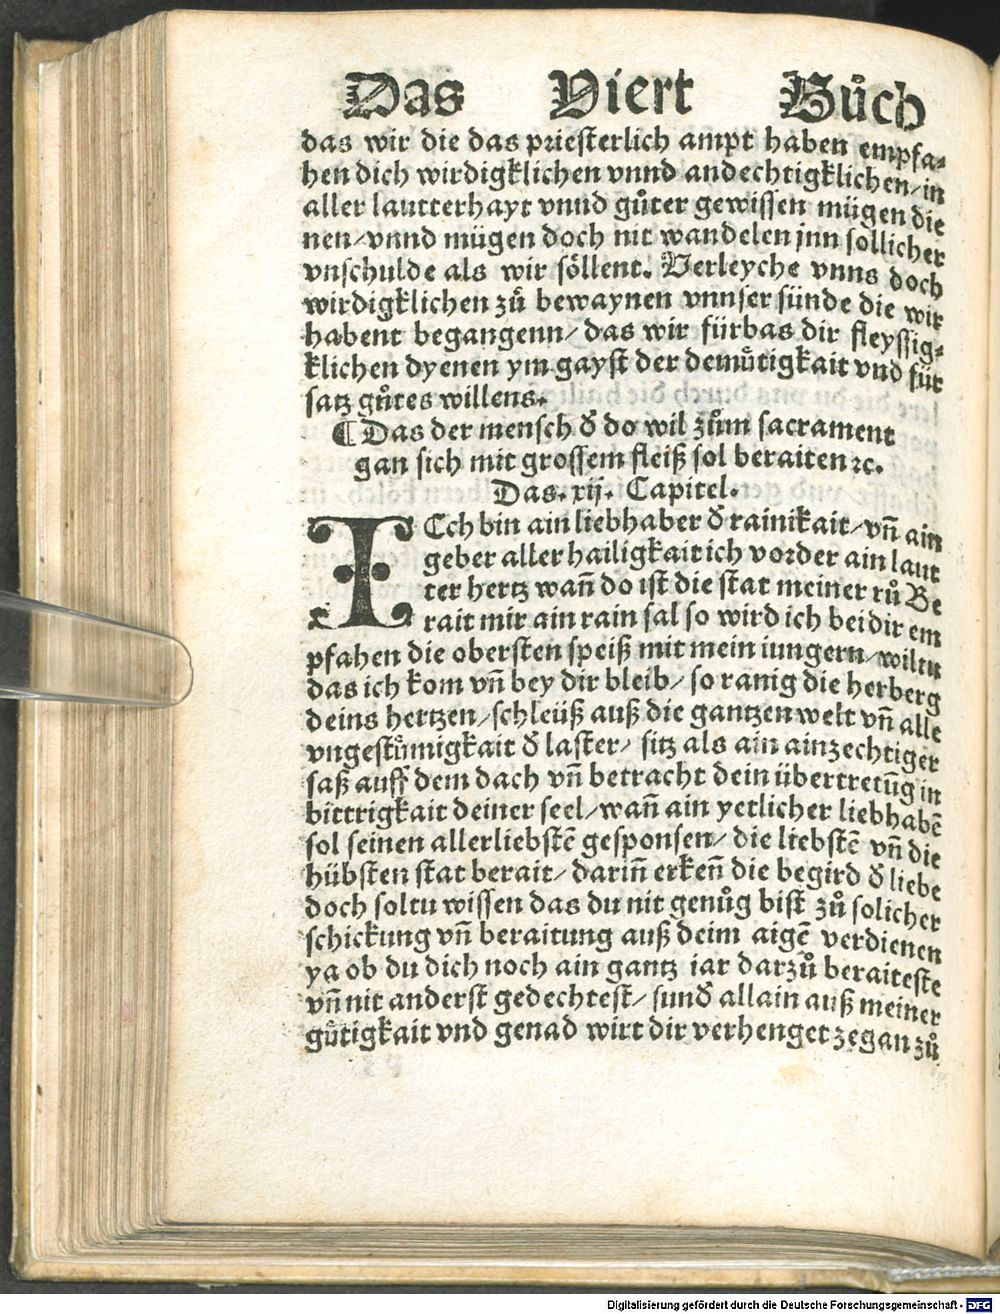 Das Viert Bůch
das wir die das priesterlich ampt haben empfa⸗
hen dich wirdigklichen vnnd andechtigklichen/in
aller lautterhayt vnnd gůter gewissen mügen die
nen/vnnd mügen doch nit wandelen jnn sollicher
vnschulde als wir söllent. Verleyche vnns doch
wirdigklichen zů bewaynen vnnser sünde die wir
habent begangenn/ das wir fürbas dir fleyssig⸗
klichen dyenen ym gayst der demůtigkait vnd für
satz gůtes willens.
¶ Das der mensch đ do wil zům sacrament
gan sich mit grossem fleiß sol beraiten ⁊c.
Das. xij. Capitel.
ICch bin ain liebhaber đ rainikait/ vn̄ ain
geber aller hailigkait ich vorder ain laut
ter hertz wan̄ do ist die stat meiner rů Be
rait mir ain rain sal so wird ich bei dir em
pfahen die obersten speiß mit mein iungern/wiltu
das ich kom vn̄ bey dir bleib/ so ranig die herberg
deins hertzen/schleüß auß die gantzen welt vn̄ alle
vngestůmigkait đ laster/ sitz als ain ainzechtiger
saß auff dem dach vn̄ betracht dein übertretūg in
bittrigkait deiner seel/wan̄ ain yetlicher liebhabē
sol seinen allerliebstē gesponsen/ die liebstē vn̄ die
hübsten stat berait/ darin̄ erken̄ die begird đ liebe
doch soltu wissen das du nit genůg bist zů solicher
schickung vn̄ beraitung auß deim aigē verdienen
ya ob du dich noch ain gantz iar darzů beraiteste
vn̄ nit anderst gedechtest/ sunđ allain auß meiner
gůtigkait vnd genad wirt dir verhenget zegan zů
Digitalisierung gefördert durch die Deutsche Forschungsgemeinschaft - DFG